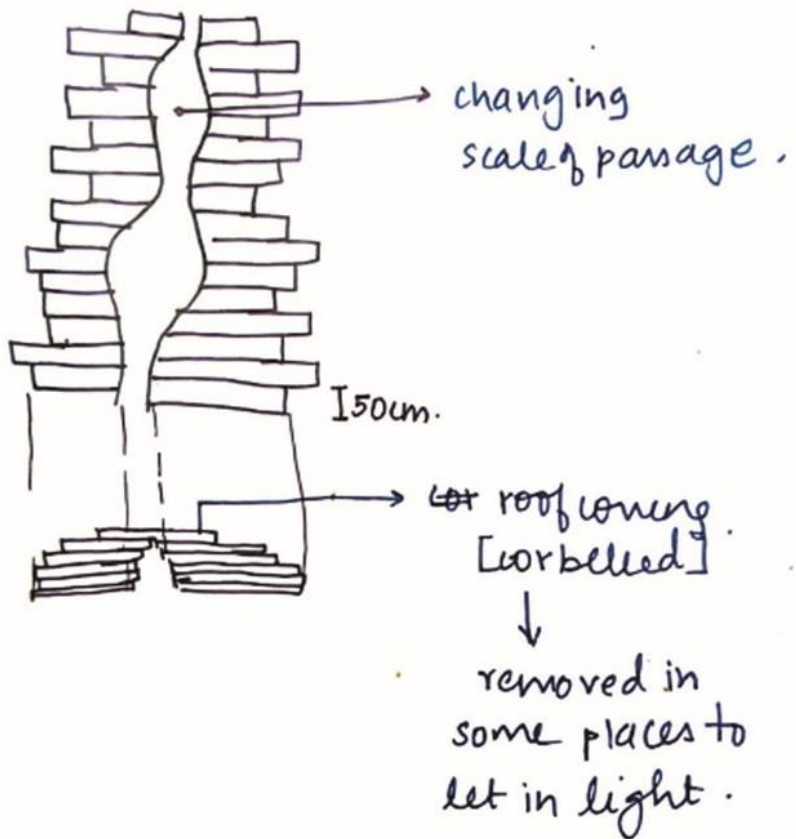 changing
scale of passage.
I50cm.
roof
[corbelled]
removed in
some places to
let in light.